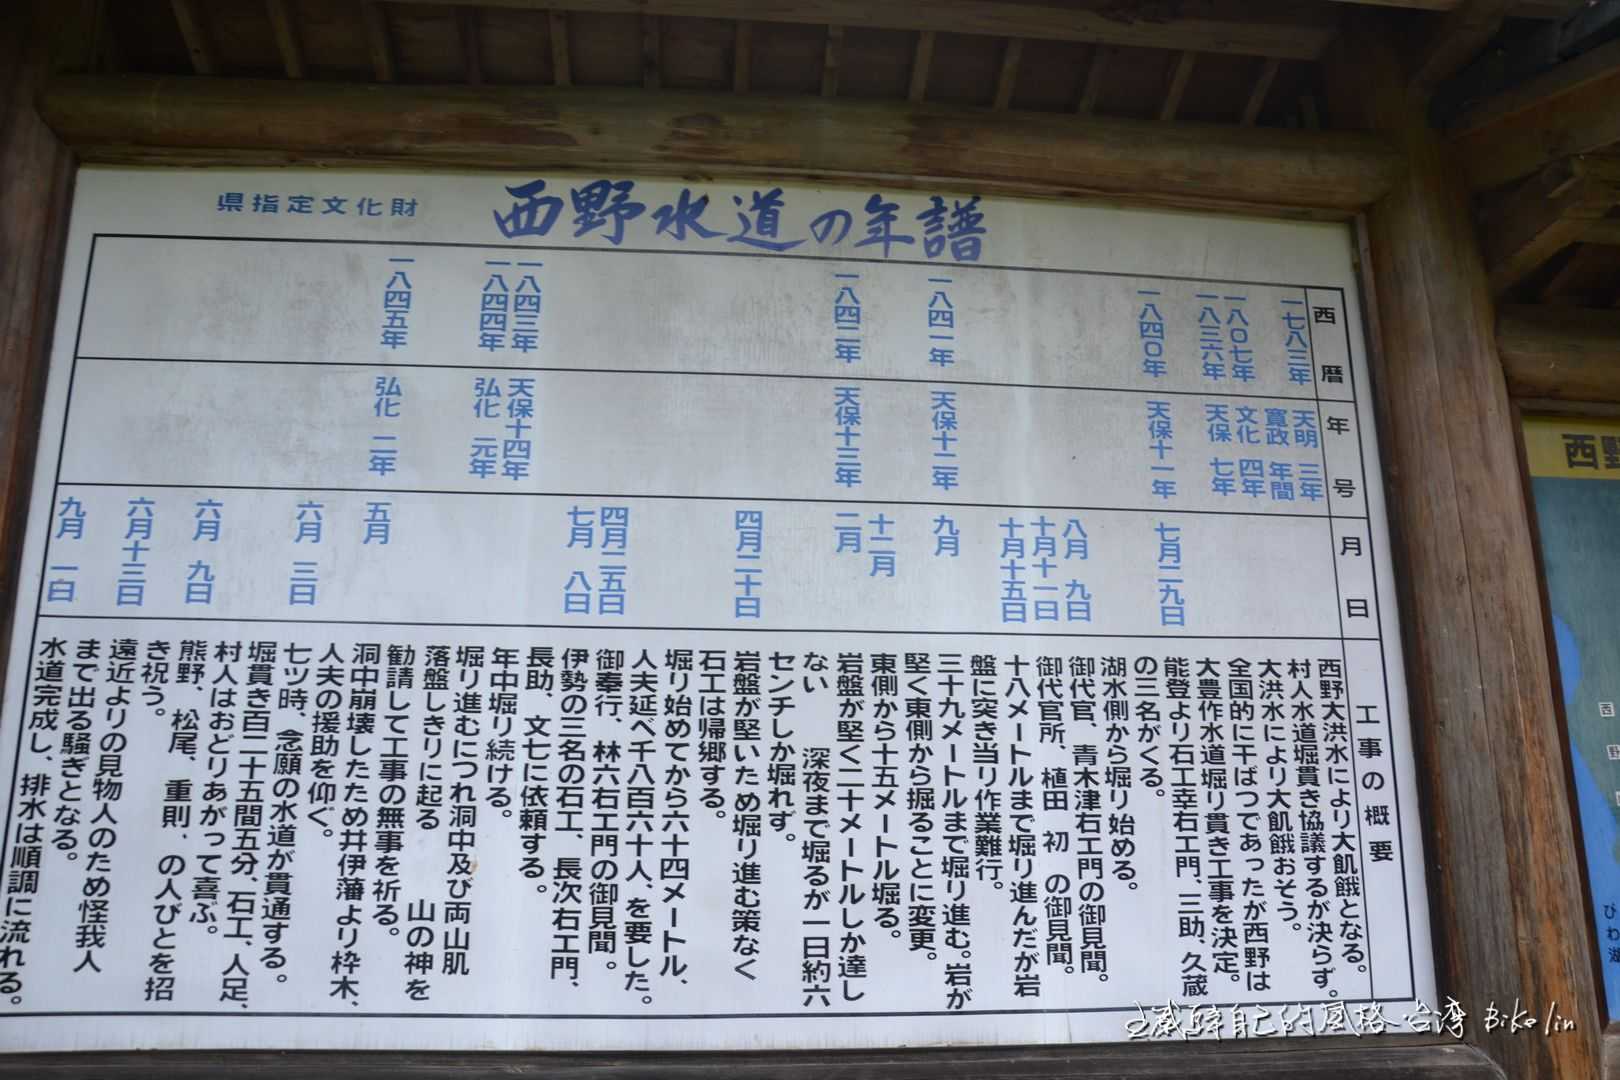 県指定文化財
西野水道の年譜
西暦
一七八三年
一八〇七年
一八三六年
一八四〇年
一八四一年
一八四二年
一八四三年
一八四四年
一八四五年
年号
天明 三年
寛政 年間
文化 四年
天保 七年
天保十一年
天保十二年
天保十三年
天保十四年
弘化 元年
弘化 二年
月日
七月二九日
八月 九日
十月十一日
十月十五日
九月
十二月
二月
四月二十日
四月二五日
七月 八日
五月
六月 三日
六月 九日
六月十三日
九月 一日
工事の概要
西野大洪水により大飢餓となる。
村人水道堀貫き協議するが決らず。
大洪水により大飢餓おそう。
全国的に干ばつであったが西野は
大豊作水道堀り貫き工事を決定。
能登より石工幸右エ門、三助、久蔵
の三名がくる。
湖水側から堀り始める。
御代官、青木津右エ門の御見聞。
御代官所、植田 初 の御見聞。
十八メートルまで堀り進んだが岩
盤に突き当り作業難行。
三十九メートルまで堀り進む。岩が
堅く東側から掘ることに変更。
東側から十五メートル堀る。
岩盤が堅く二十メートルしか達し
ない 深夜まで堀るが一日約六
センチしか堀れず。
岩盤が堅いため堀り進む策なく
石工は帰郷する。
堀り始めてから六十四メートル、
人夫延べ千八百六十人、を要した。
御奉行、林六右エ門の御見聞。
伊勢の三名の石工、長次右エ門、
長助、文七に依頼する。
年中堀り続ける。
堀り進むにつれ洞中及び両山肌
落盤しきりに起る 山の神を
勧請して工事の無事を祈る。
洞中崩壊したため井伊藩より枠木、
人夫の援助を仰ぐ。
七ツ時、念願の水道が貫通する。
堀貫き百二十五間五分、石工、人足、
村人はおどりあがって喜ぶ。
熊野、松尾、重則、の人びとを招
き祝う。
遠近よりの見物人のため怪我人
まで出る騒ぎとなる。
水道完成し、排水は順調に流れる。
西野
びわ湖
自己的風格 台湾 Biko lin